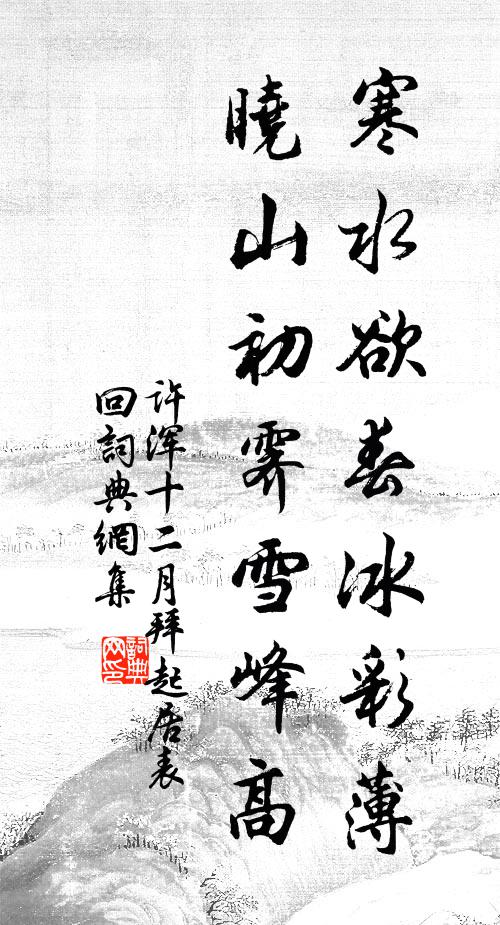 寒水欲春冰彩薄
曉山初霽雪峰高
许浑十二月拜起居表
回詞典網集
詞典
网印